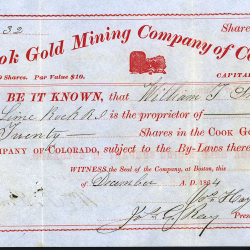 32 Share
ook Gold Mining Company of Co
0 Shares. Par Value $10. CAPITAL
BE IT KNOWN, that William T.
Lime Rock R.I. is the proprietor of
Twenty Shares in the Cook Go
MPANY OF COLORADO, subject to the By-Laws there
WITNESS the Seal of the Company, at Boston, this
day of December A. D. 1864
Pres